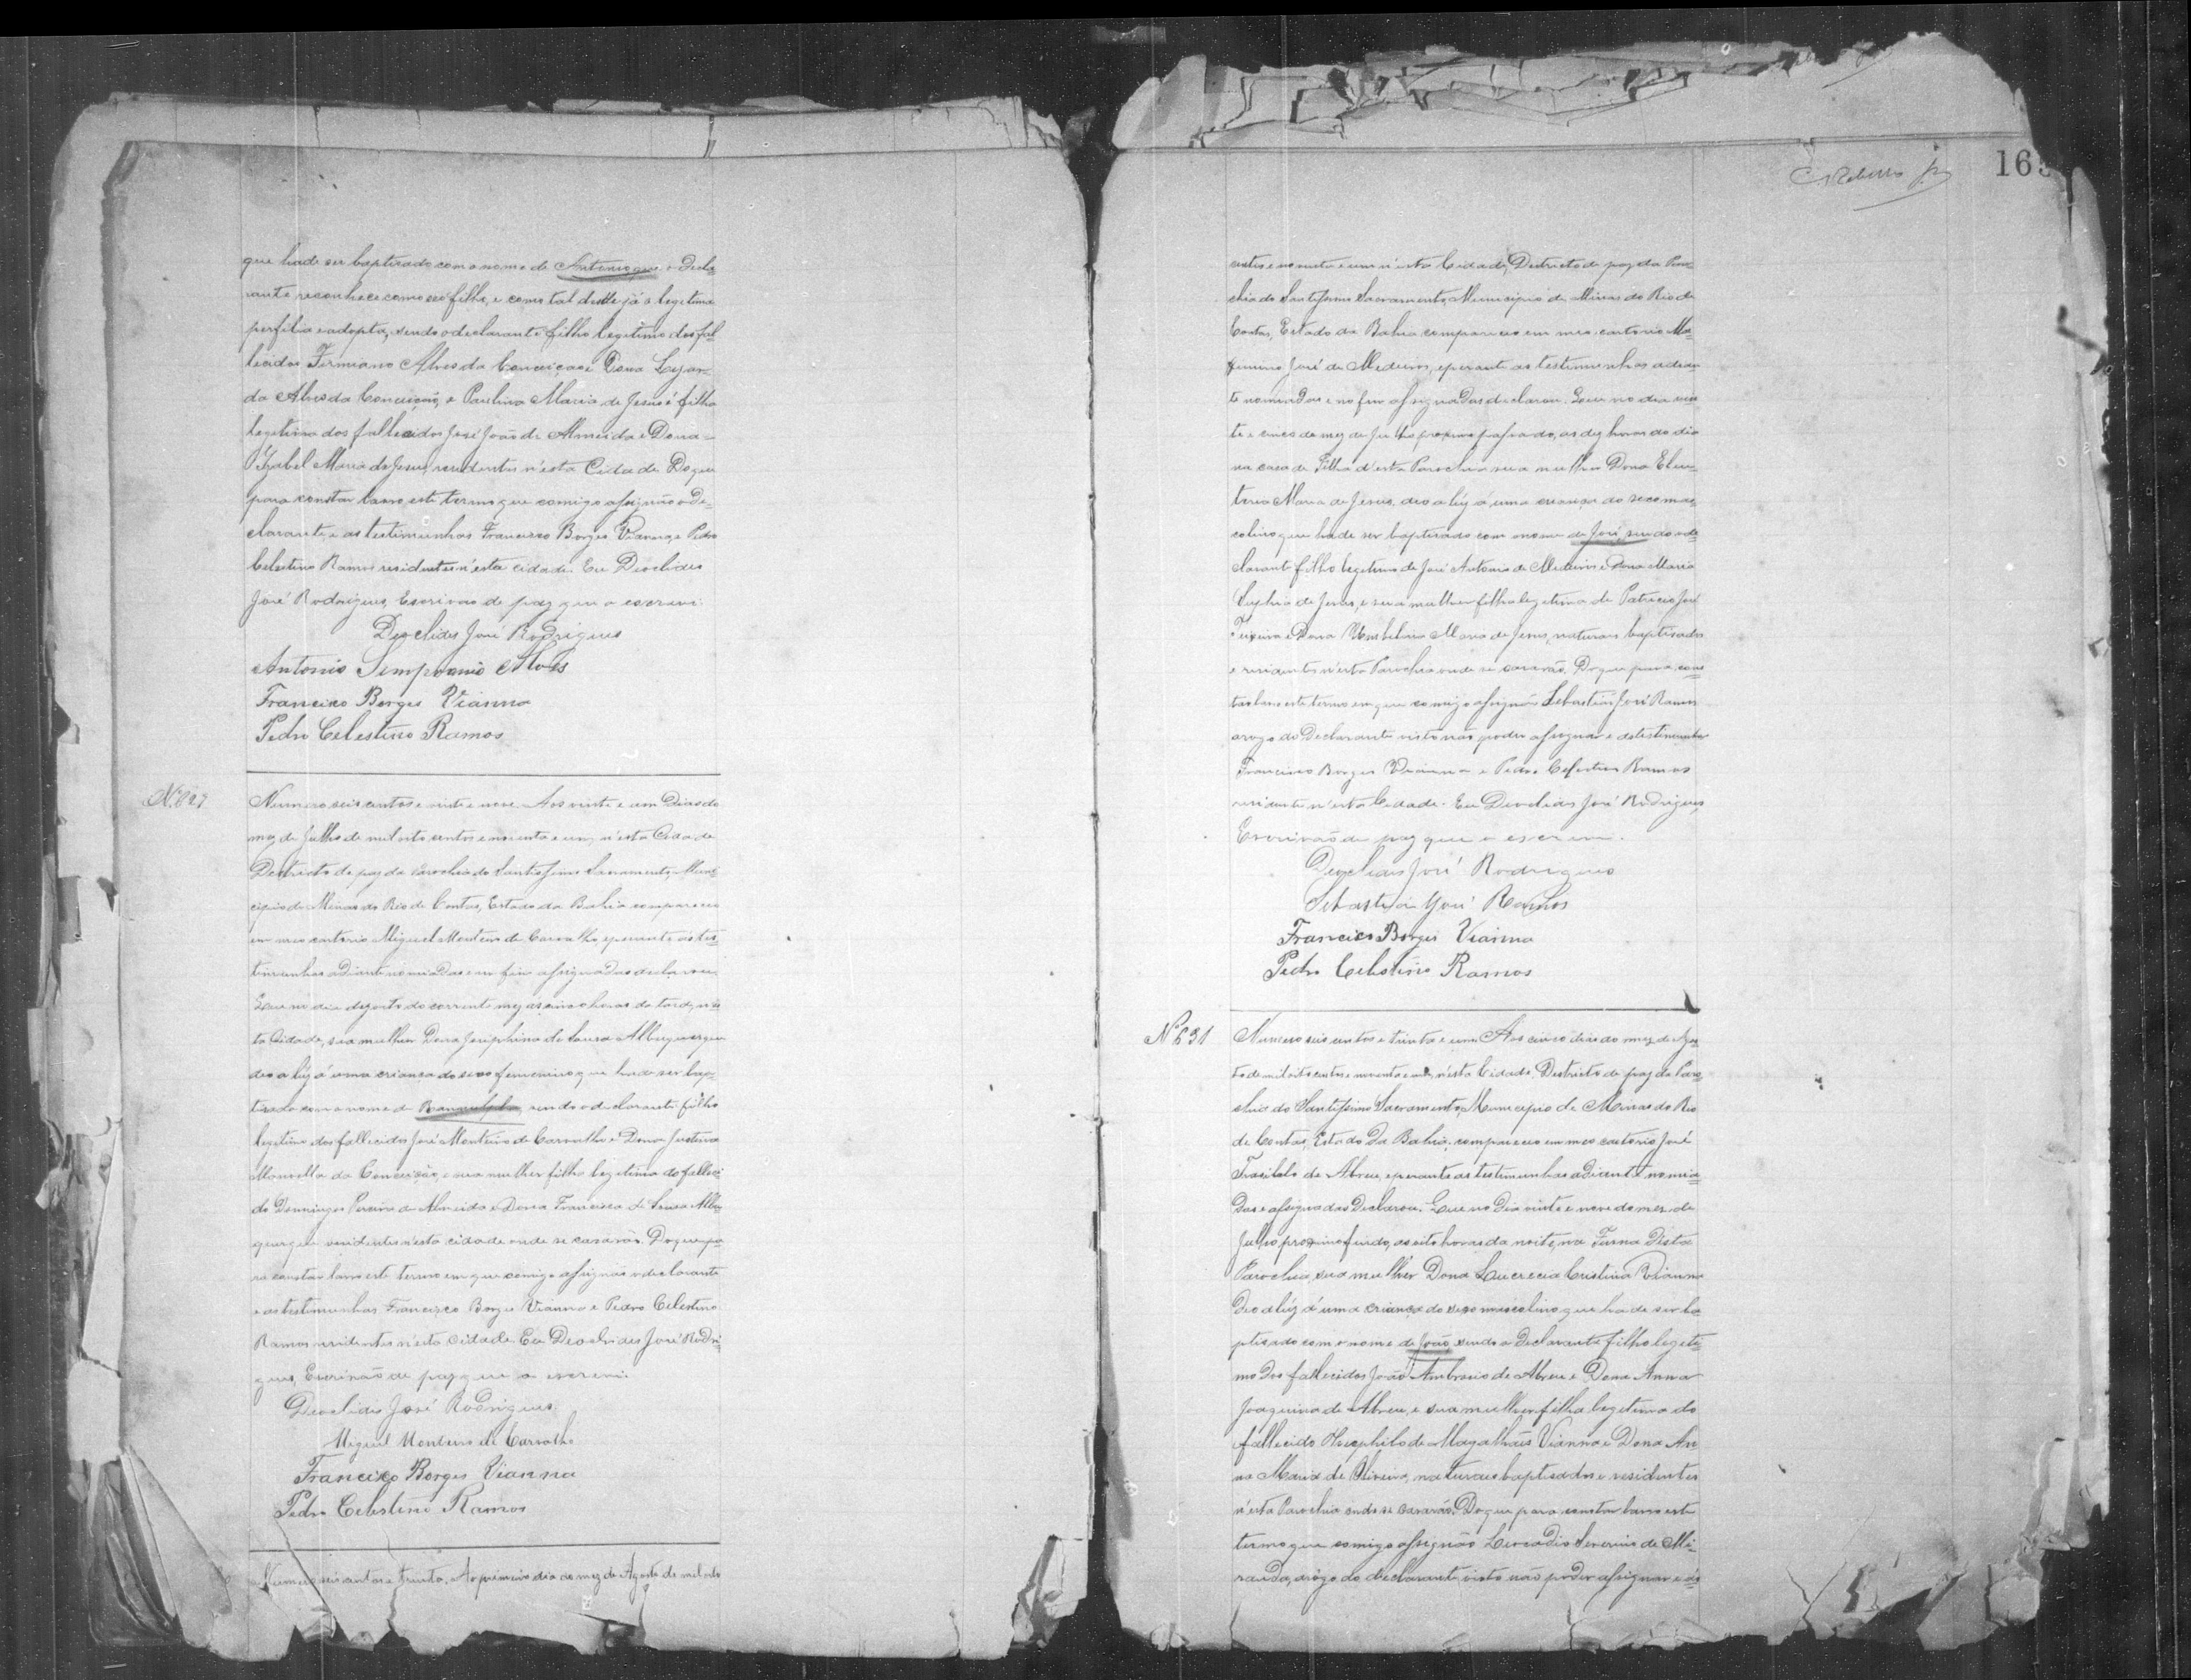 que hade ser baptisado com o nome de Antonio, que o Decla-
rante reconhece como seo filho, e como tal desde já o legetima
perfilia e adopta, sendo o declarante filho legitimo dos fal-
lecidos Firmiano Alves da Conceição e Dona
da Alves da Conceição, e Paulina Maria de Jesus é filha
legitima dos fallecidos José João de Almeida e Dona
Izabel Maria de Jesus, residentes n'esta Cidade. Do que
para constar lavro este termo que comigo assignão o De-
clarante, e as testimunhas Francisco Borges Vianna, e Pedro
Celestino Ramos residentes n'esta cidade. Eu Deoclides
José Rodrigues, Escrivão de paz que o escrevi.
Deoclides José Rodrigues
Antonio Sempronio Alves
Francisco Borges Vianna
Pedro Celestino Ramos
N. 629
Numero seis centos e vinte e nove. Aos vinte e um Dias do
mez de Julho de mil oito centos e noventa e um, n'esta Cidade
Destricto de paz da Parochia do Santissimo Sacramento, Muni-
cipio de Minas do Rio de Contas, Estado da Bahia compareceo
em meo cartorio Miguel Monteiro de Carvalho, e perante as tes-
timunhas adiante nomiadas e no fim assignadas declarou.
Que no dia dezoito do corrente mez as cinco horas da tarde, n'es-
ta Cidade, sua mulher Dona Josephina de Sousa Albuquerque
deo a lúz á uma criansa do sexo femenino que hade ser bap-
tisada com o nome de sendo o declarante filho
legitimo dos fallecidos José Monteiro de Carvalho e Dona Justina
Manoella da Conceição, e sua mulher filha legitima do falleci-
do Domingos Pereira de Almeida e Dona Francisca de Sousa Albu-
querque residentes n'esta cidade onde se casarão. Do que pa-
ra constar lavro este termo em que comigo assignão o declarante
e as testimunhas Francisco Borges Vianna e Pedro Celestino
Ramos residentes n'esta cidade. Eu Deoclides José Rodri-
gues, Escrivão de paz que o escrevi.
Deoclides José Rodrigues.
Miguel Monteiro de Carvalho
Francisco Borges Vianna
Pedro Celestino Ramos
Numero seis centos e trinta. Ao primeiro dia do mez de Agosto de mil oito
165
centos e noventa e um n'esta Cidade, Destricto de paz da Paro-
chia do Santissimo Sacramento, Municipio de Minas do Rio de
Contas, Estado da Bahia compareceo em meo cartorio Ma-
ximino José de Medeiros, e perante as testimunhas adean-
te nomiadas e no fim assignadas declarou. Que no dia vin-
te e cinco do mez de Julho proximo passado, as dez horas do dia
na casa de Telha d'esta Parochia sua mulher Dona Eleu-
teria Maria de Jesus, deo a lúz á uma criansa do sexo mas-
colino que hade ser baptisado com o nome de José, sendo o de-
clarante filho legitimo de José Antonio de Medeiros e Dona Maria
Sophia de Jesus, e sua mulher filha legitima de Patricio José
Teixeira e Dona Umbelina Maria de Jesus, naturais baptisados
e residentes n'esta Parochia onde se casarão. Do que para cons-
tar lavro este termo em que comigo assignão Sebastião José Ramos
arogo do Declarante visto não poder assignar e as testimunhas
Francisco Borges Vianna e Pedro Celestino Ramos
residentes n'esta Cidade. Eu Deoclides José Rodrigues,
Escrivão de paz que o escrevi.
Deoclides José Rodrigues
Sebastião José Ramos
Francisco Borges Vianna
Pedro Celestino Ramos
N. 631
Numero seis centos e trinta e um. Aos cinco dias do mez de Agos-
to de mil oito centos e noventa e um, n'esta Cidade, Destricto de paz da Paro-
chia do Santissimo Sacramento, Municipio de Minas do Rio
de Contas, Estado Da Bahia, compareceo em meo cartorio José
Trasibulo de Abreu, e perante as testimunhas adiante nomia-
das e assignadas Declarou. Que no Dia vinte e nove do mez de
Julho proximo findo, as oito horas da noite, na Furna D'esta
Parochia, sua mulher Dona Lucrecia Cristina Vianna
Deo a lúz á uma criança do sexo mascolino que hade ser ba-
ptisado com o nome de João, sendo o Declarante filho legeti-
mo Dos fallecidos João Ambrosio de Abreu e Dona Anna
Joaquina de Abreu, e sua mulher filha legetima do
fallecido Theophilo de Magalhães Vianna e Dona An-
na Maria de Oliveira, naturais baptisados e residentes
n'esta Parochia onde se casarão. Do que para constar lavro este
termo que comigo assignão Leocadio Severino de Mi-
randa, arogo do declarante, visto não poder assignar e as